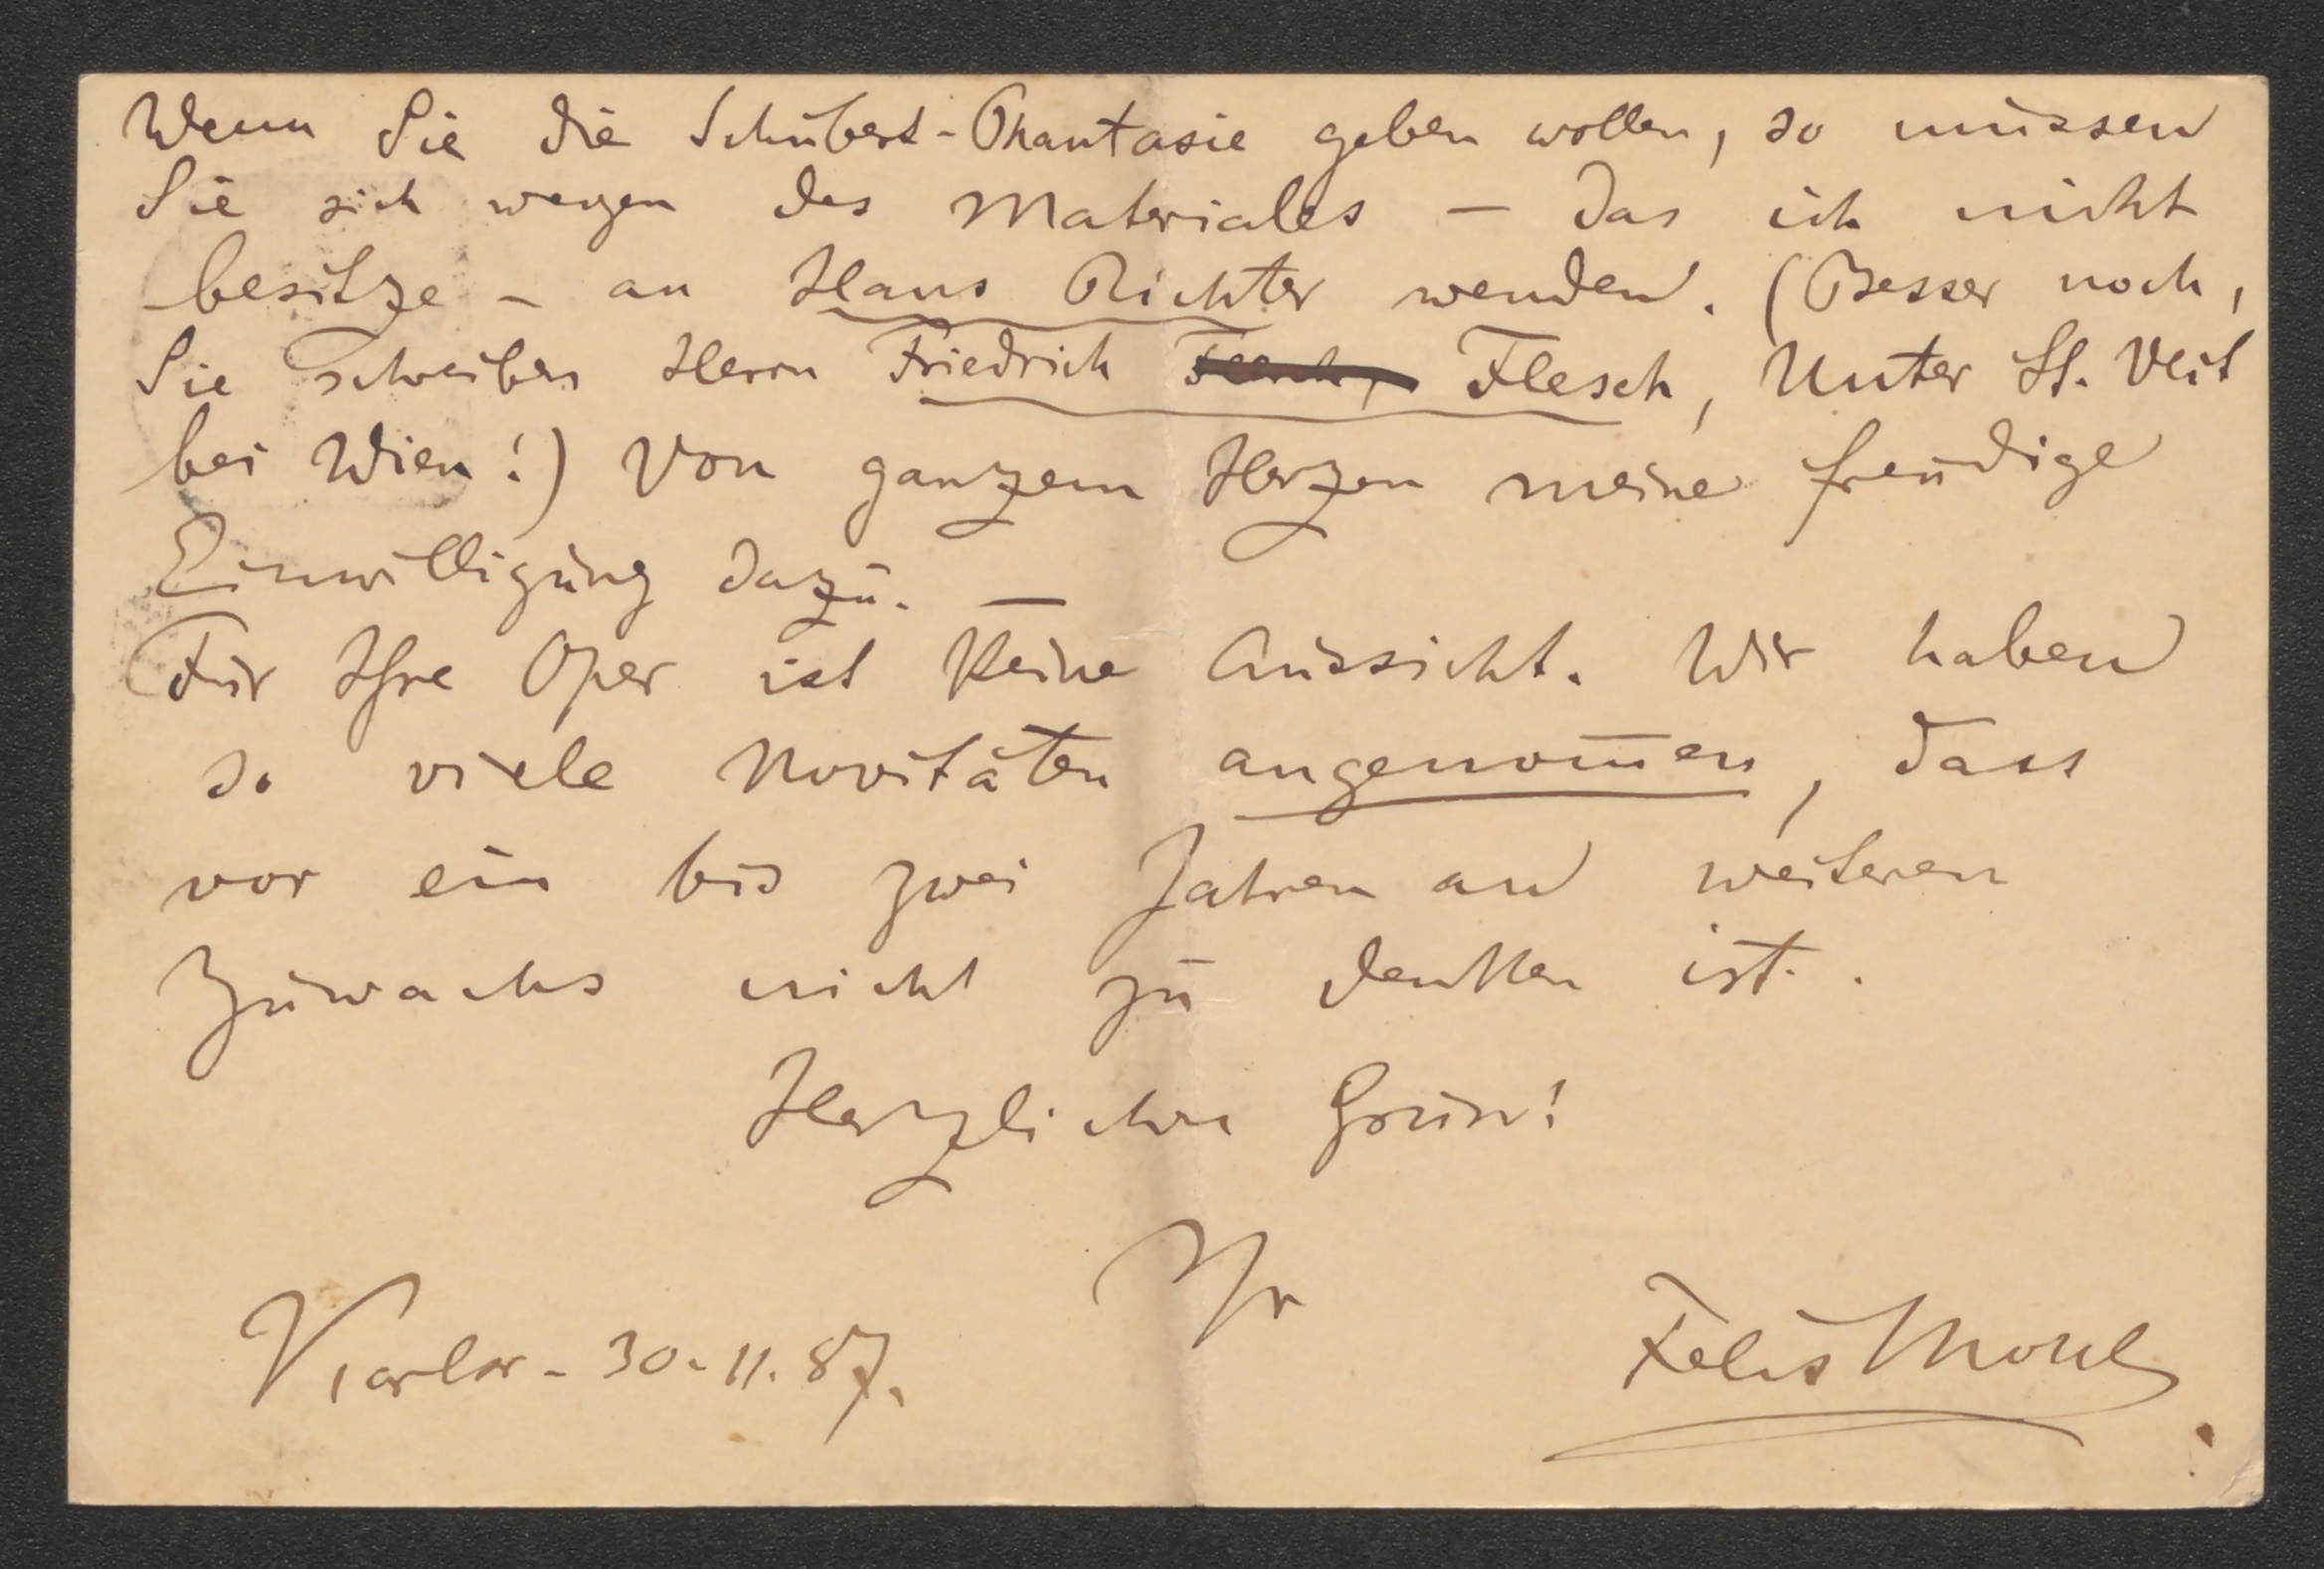 Wenn Sie die Schubert-Phantasie geben wollen, so müssen
Sie sich wegen des Materiales – das ich nicht
besitze – an Hans Richter wenden. (Besser noch,
Sie schreiben Herrn Friedrich Flesch, Unter St. Veit
bei Wien!) Von ganzem Herzen meine freudige
Einwilligung dazu. —
Für Ihre Oper ist keine Aussicht. Wir haben
so viele Novitäten angenom̄en, dass
vor ein bis zwei Jahren an weiteren
Zuwachs nicht zu denken ist.
Herzlichen Gruss!
Ihr
Karlsr. 30.11.87.
Felix Mottl